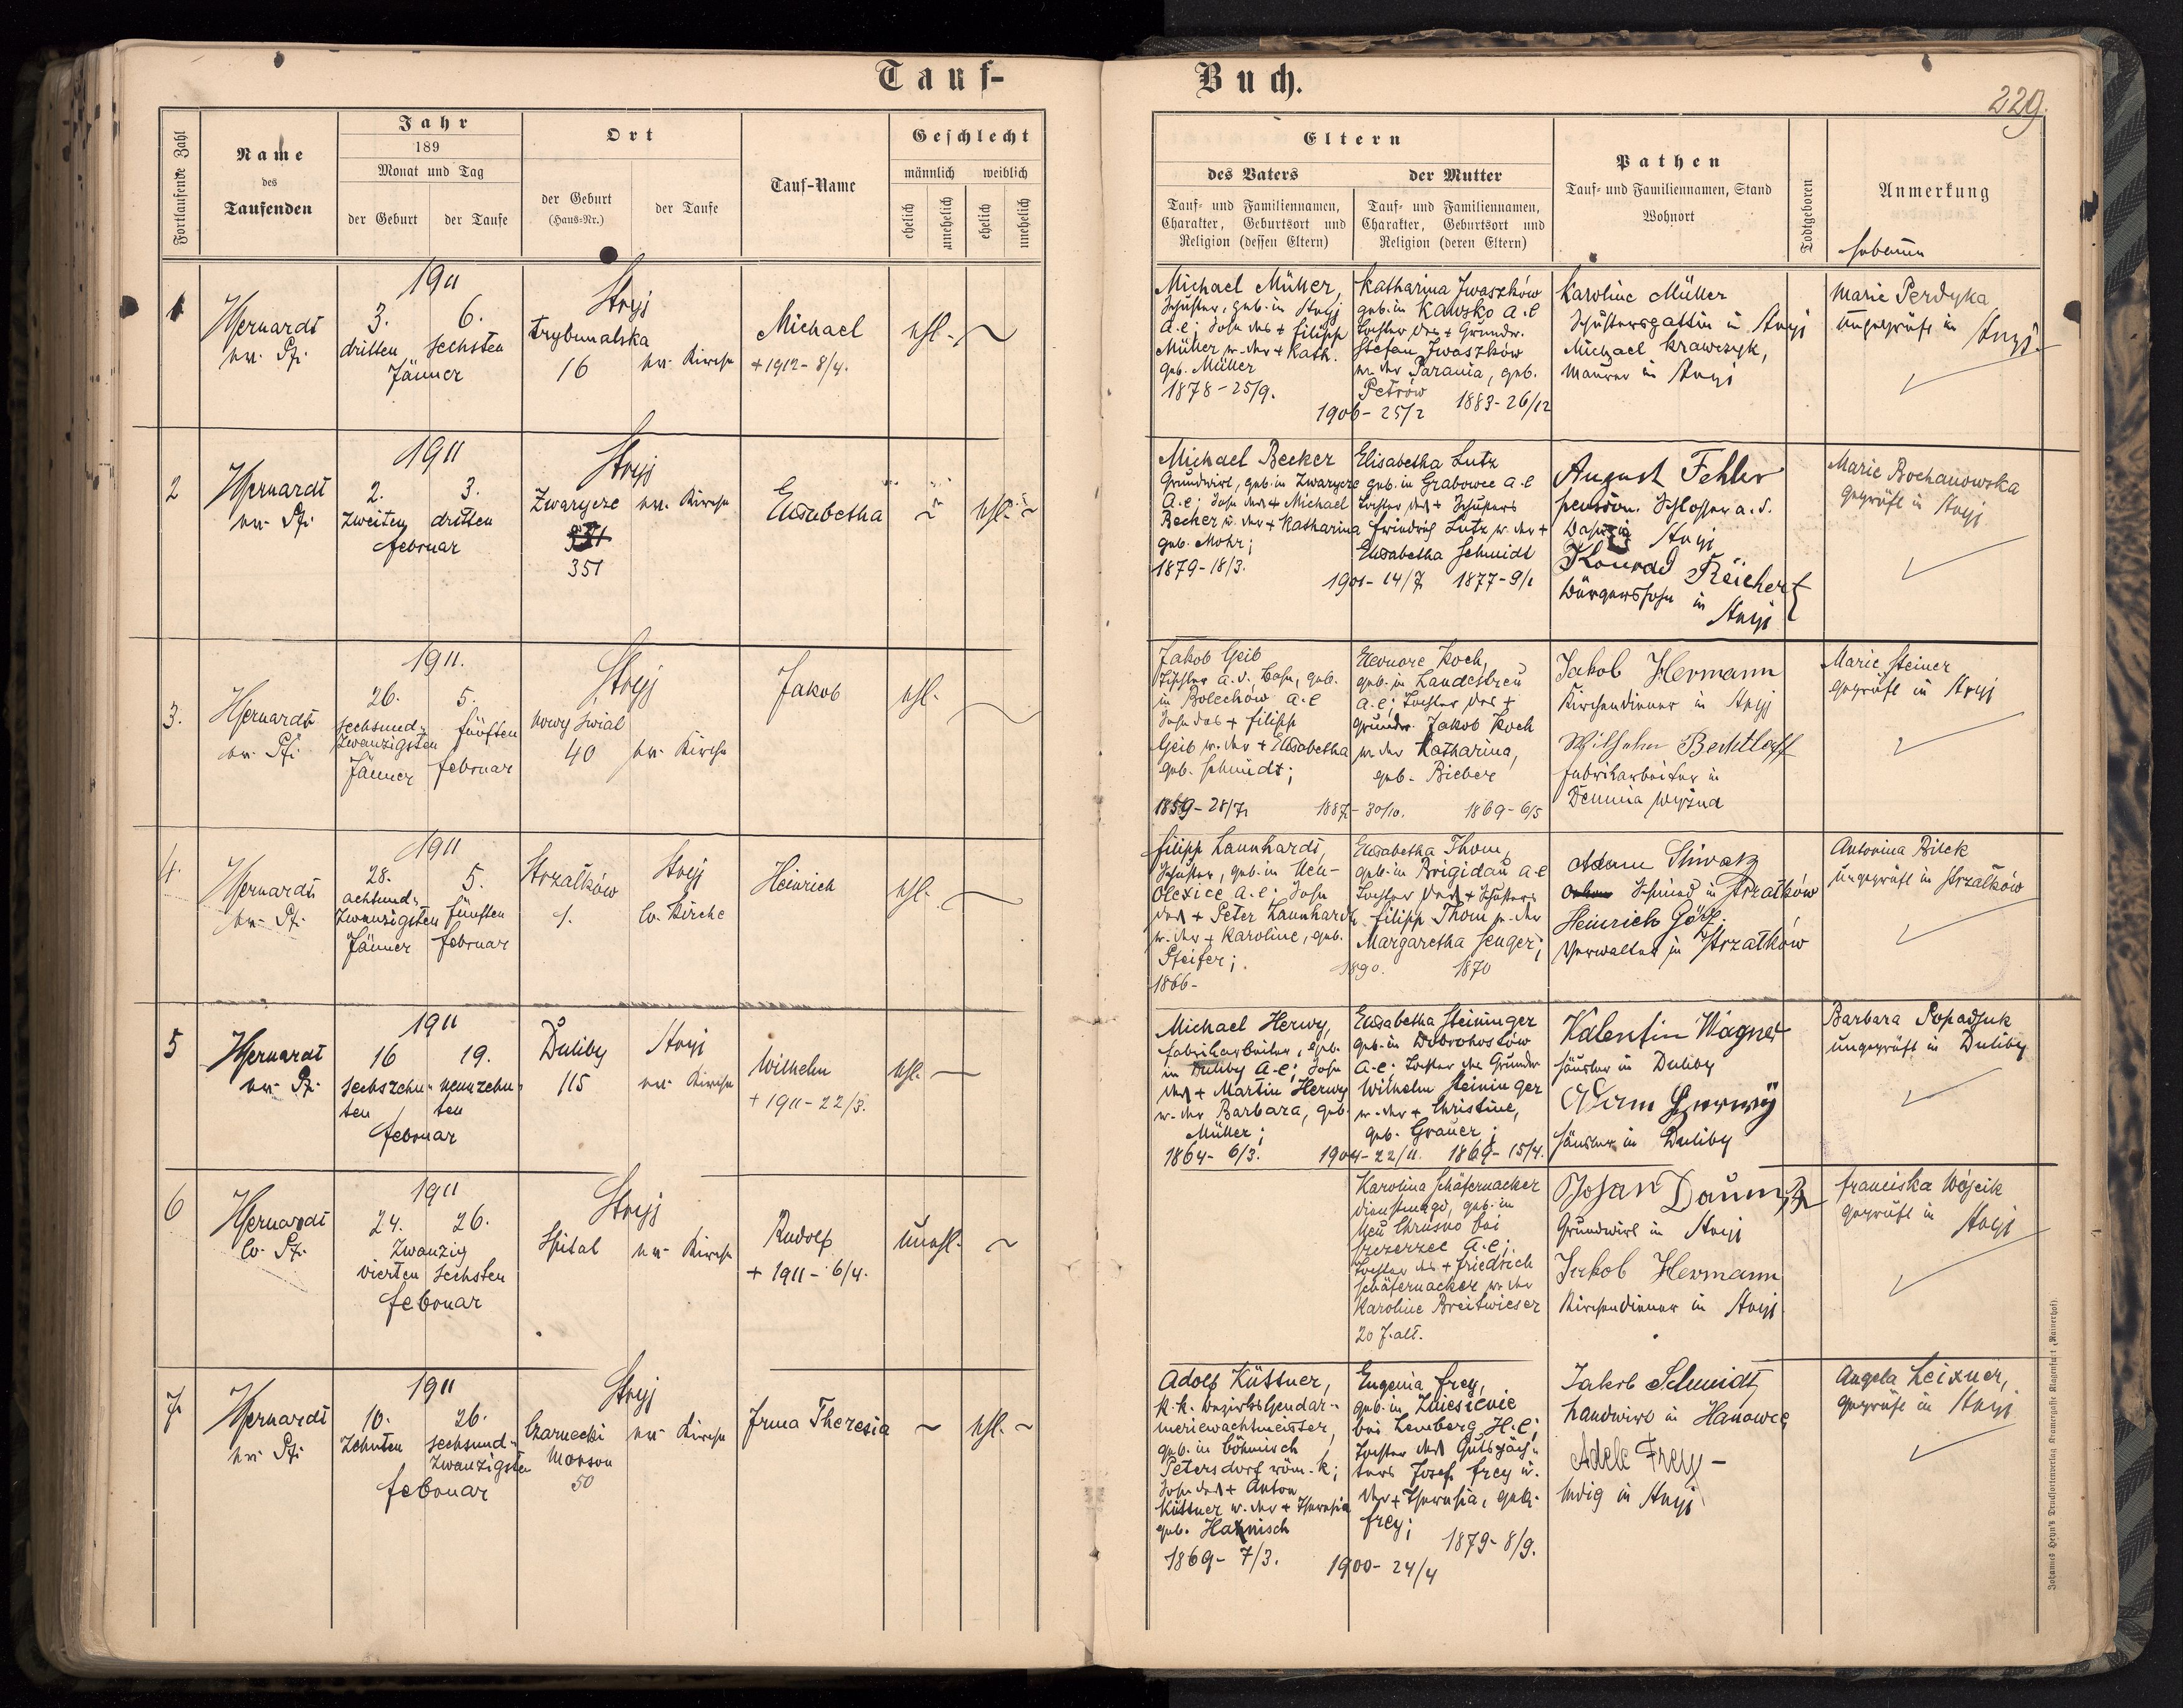 Tauf-
Fortlaufende Zahl
Name
des
Taufenden
Jahr
189
Monat und Tag
der Geburt
der Taufe
Ort
der Geburt
(Haus-Nr.)
der Taufe
Tauf-Name
Geschlecht
männlich weiblich
ehelich
unehelich
ehelich
unehelich
1
ev. Pf.
1911
3. 6.
dritten sechsten
Jänner
Stryj
trybunalska
16 ev. Kirche
Michael
+ 1912 - 8/4.
ehl.
2
ev. Pf.
1911
2. 3.
zweiten dritten
februar
Stryj
Zwarycze ev. Kirche
351
Elisabetha
ehl.
3.
ev. Pf.
1911.
26. 5.
sechsund- fünften
zwanzigsten
Jänner februar
Stryj
nowy świat
40 ev. Kirche
Jakob
ehl.
4.
ev. Pf.
1911
28. 5.
achtund-
zwanzigsten fünften
Jänner februar
Strzałków Stryj
1. ev. Kirche
Heinrich
ehl.
5
ev. Pf.
1911
16 19.
sechszehn- neunzehn-
ten ten
februar
Duliby Stryj
115 ev. Kirche
Wilhelm
+ 1911 - 22/3.
ehl.
6
ev. Pf.
1911
24. 26.
zwanzig
vierten sechsten
februar
Stryj
Spital ev. Kirche
Rudolf
+ 1911 - 6/4.
unehl.
7.
ev. Pf.
1911
10. 26.
zehnten sechsund-
zwanzigsten
februar
Stryj
Czarnecki ev. Kirche
50
Irma Theresia
ehl.
Buch.
229.
Eltern
des Vaters
der Mutter
Tauf- und Familiennamen,
Charakter, Geburtsort und
Religion (dessen Eltern)
Tauf- und Familiennamen,
Charakter, Geburtsort und
Religion (deren Eltern)
Pathen
Tauf- und Familiennamen, Stand
Wohnort
Todtgeboren
Anmerkung
Hebamme
Michael Müller,
Schuster, geb. in Stryj
a. c; Sohn des + Filipp
Müller u. der + Kath.
geb. Müller
1878 - 25/9.
Katharina Iwaszków
geb. in Kawsko a. c
Tochter des + Grundw.
Stefan Iwaszków
u. der Parania, geb.
Petrów
1906 - 25/2 1883 - 26/12
Karoline Müller
Schustersgattin in Stryj
Michael Krawczyk,
Maurer in Stryj
Marie Perdyka
ungeprüft in Stryj
Michael Becker
Grundwirt, geb. in Zwarycze
a. c; Sohn des + Michael
Becker u. der + Katharina
geb. Mohr;
1879 - 18/3.
Elisabetha Lutz
geb. in Grabowce a. c
Tochter des + Schusters
Friedrich Lutz u. der +
Elisabetha Schmidt
1901 - 14/7. 1877 - 9/1
August Fehler
pension. Schlosser a. d.
Bahn in Stryj
Konrad Reichert
Bürgerssohn in
Stryj
Marie Bochanowska
geprüft in Stryj
Jakob Geib
Tischler a. d. Bahn, geb.
in Bolechów a. c
Sohn des + Filipp
Geib u. der + Elisabetha
geb. Schmidt;
1859 - 28/7.
Eleonore Koch,
geb. in Landestreu
a. c; Tochter des +
Grundw. Jakob Koch
u. der Katharina,
geb. Bieber
1887 - 30/10. 1869 - 6/5
Jakob Hermann
Kirchendiener in Stryj
Wilhelm Bechtloff
Fabriksarbeiter in
Demnia wyżna
Marie Steiner
geprüft in Stryj
Filipp Launhardt,
Schuster, geb. in Neu-
Olexice a. c; Sohn
des + Peter Launhardt
u. der + Karoline, geb.
Pfeifer;
1866 -
Elisabetha Thom,
geb. in Brigidau a. c
Tochter des + Schusters
Filipp Thom u. der
Margaretha Senger;
1890. 1870
Adam
Schmied in Strzałków
Heinrich Götz.
Verwalter in Strzałków
Antonina Bilek
ungeprüft in Strzałków
Michael Herwy,
Fabriksarbeiter, geb.
in Duliby a. c; Sohn
des + Martin Herwy
u. der Barbara, geb.
Müller;
1864 - 6/3.
Elisabetha Steininger
geb. in Dobrohostów
a. c; Tochter des Grundw.
Wilhelm Steininger
u. der + Christine,
geb. Grauer;
1904 - 22/11. 1869 - 15/4.
Valentin Wagner
Häusler in Duliby
Adam Herwy
Häusler in Duliby
Barbara Popadjuk
ungeprüft in Duliby
Karolina Schäfernacker
Dienstmagd, geb. in
Neu Chrusno bei
Szczerzec a. c;
Tochter des + Friedrich
Schäfernacker u. der
Karoline Breitwieser
20 J. alt.
Johan Daum
Grundwirt in Stryj
Jakob Hermann
Kirchendiener in Stryj
Franciska Wójcik
geprüft in Stryj
Adolf Küttner,
k. k. Bezirks Gendar-
meriewachtmeister,
geb. in böhmisch
Petersdorf röm. k;
Sohn des + Anton
Küttner u. der + Theresia
geb. Harnisch
1869 - 7/3.
Eugenia Frey,
geb. in Zniesienie
bei Lemberg H. c;
Tochter des Gutspäch-
ters Josef Frey u.
der + Theresia, geb.
Frey;
1879 - 8/9.
1900 - 24/4
Jakob Schmidt
Landwirt in Hanowce
Adele Frey -
ledig in Stryj
Angela Leixner,
geprüft in Stryj
Johann Heyn's Drucksortenverlag Kramergasse Klagenfurt (Rainerhof).